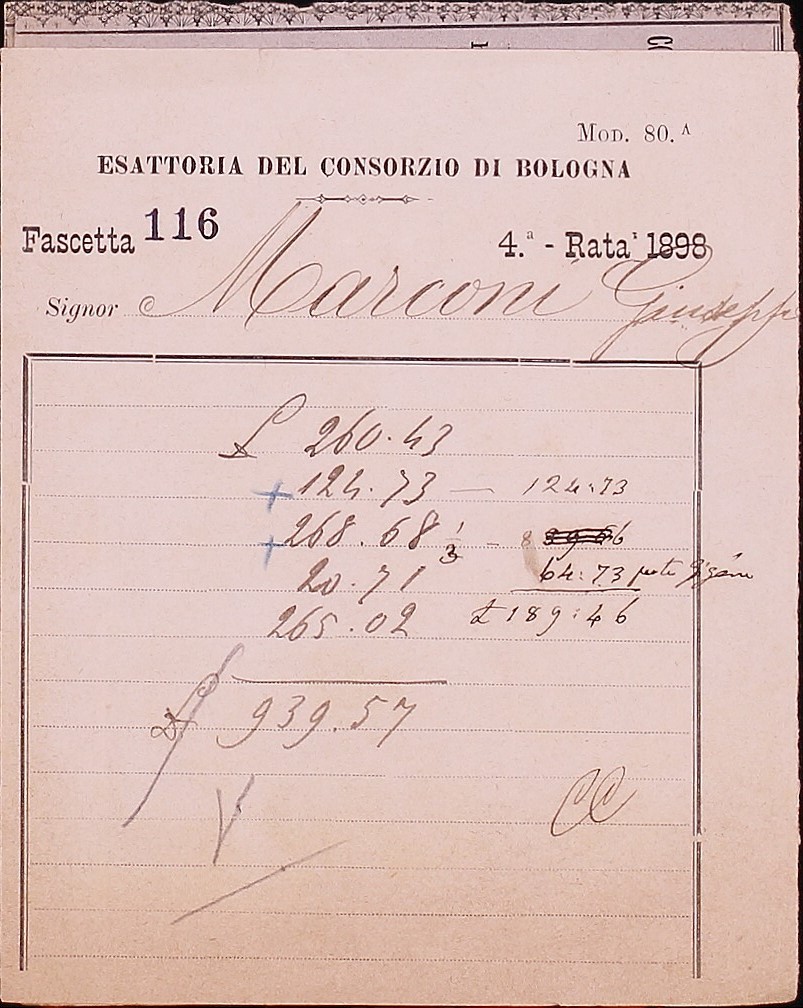 MOD. 80.A
ESATTORIA DEL CONSORZIO DI BOLOGNA
Fascetta 116
4.a - Rata 1898
Signor Marconi Giuseppe
£ 260.43
+ 124.73 — 124:73
+ 268.68 1/3 –
20.71 64:73
265.02 £ 189:46
£ 939.57
CC